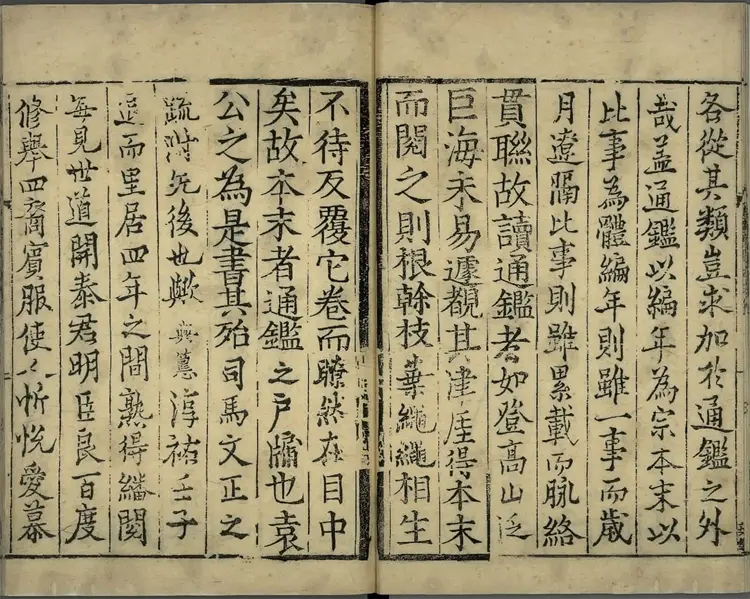 各從其類豈求加扵通鑑之外
哉盖通鑑以編年為宗本末以
比事為體編年則雖一事而歲
月遼隔比事則雖累載而脉絡
貫聯故讀通鑑者如登高山泛
巨海未易遽覩其津厓得本末
而閱之則根幹枝葉繩繩相生
不待反覆它卷而瞭然在目中
矣故本末者通鑑之戶牖也袁
公之為是書其殆司馬文正之
疏附先後也歟與淳祐壬子
退而里居四年之間熟得繙閱
每見世道開泰君明臣良百度
修舉四裔賓服使人忻悅愛慕